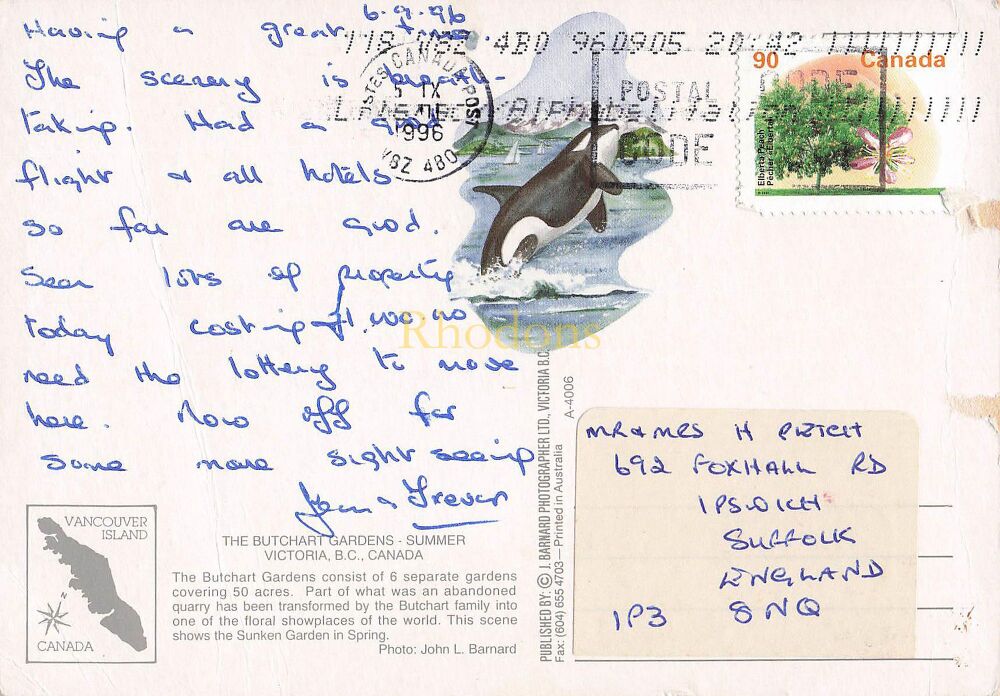 6.9.96
Having a great time
The scenery is breath-
taking. Had a good
flight & all hotels
so far are good.
Seen lots of property
today costing
need the lottery to move
here. Now off for
some more sight seeing
Jean & Trevor
CANADA POST
POSTES
5 IX
1996
V8Z 4B0
V8Z 4B0 960905 20:42
POSTAL
CODE
90 Canada
Elberta Peach
Pêcher «Elberta»
Rhodons
MR & MRS H PLETCH
692 FOXHALL RD
IPSWICH
SUFFOLK
ENGLAND
IP3 8NQ
VANCOUVER
ISLAND
N
CANADA
THE BUTCHART GARDENS - SUMMER
VICTORIA, B.C., CANADA
The Butchart Gardens consist of 6 separate gardens
covering 50 acres. Part of what was an abandoned
quarry has been transformed by the Butchart family into
one of the floral showplaces of the world. This scene
shows the Sunken Garden in Spring.
Photo: John L. Barnard
PUBLISHED BY: © J. BARNARD PHOTOGRAPHER LTD., VICTORIA B.C.
Fax: (604) 655 4703 — Printed in Australia
A-4006